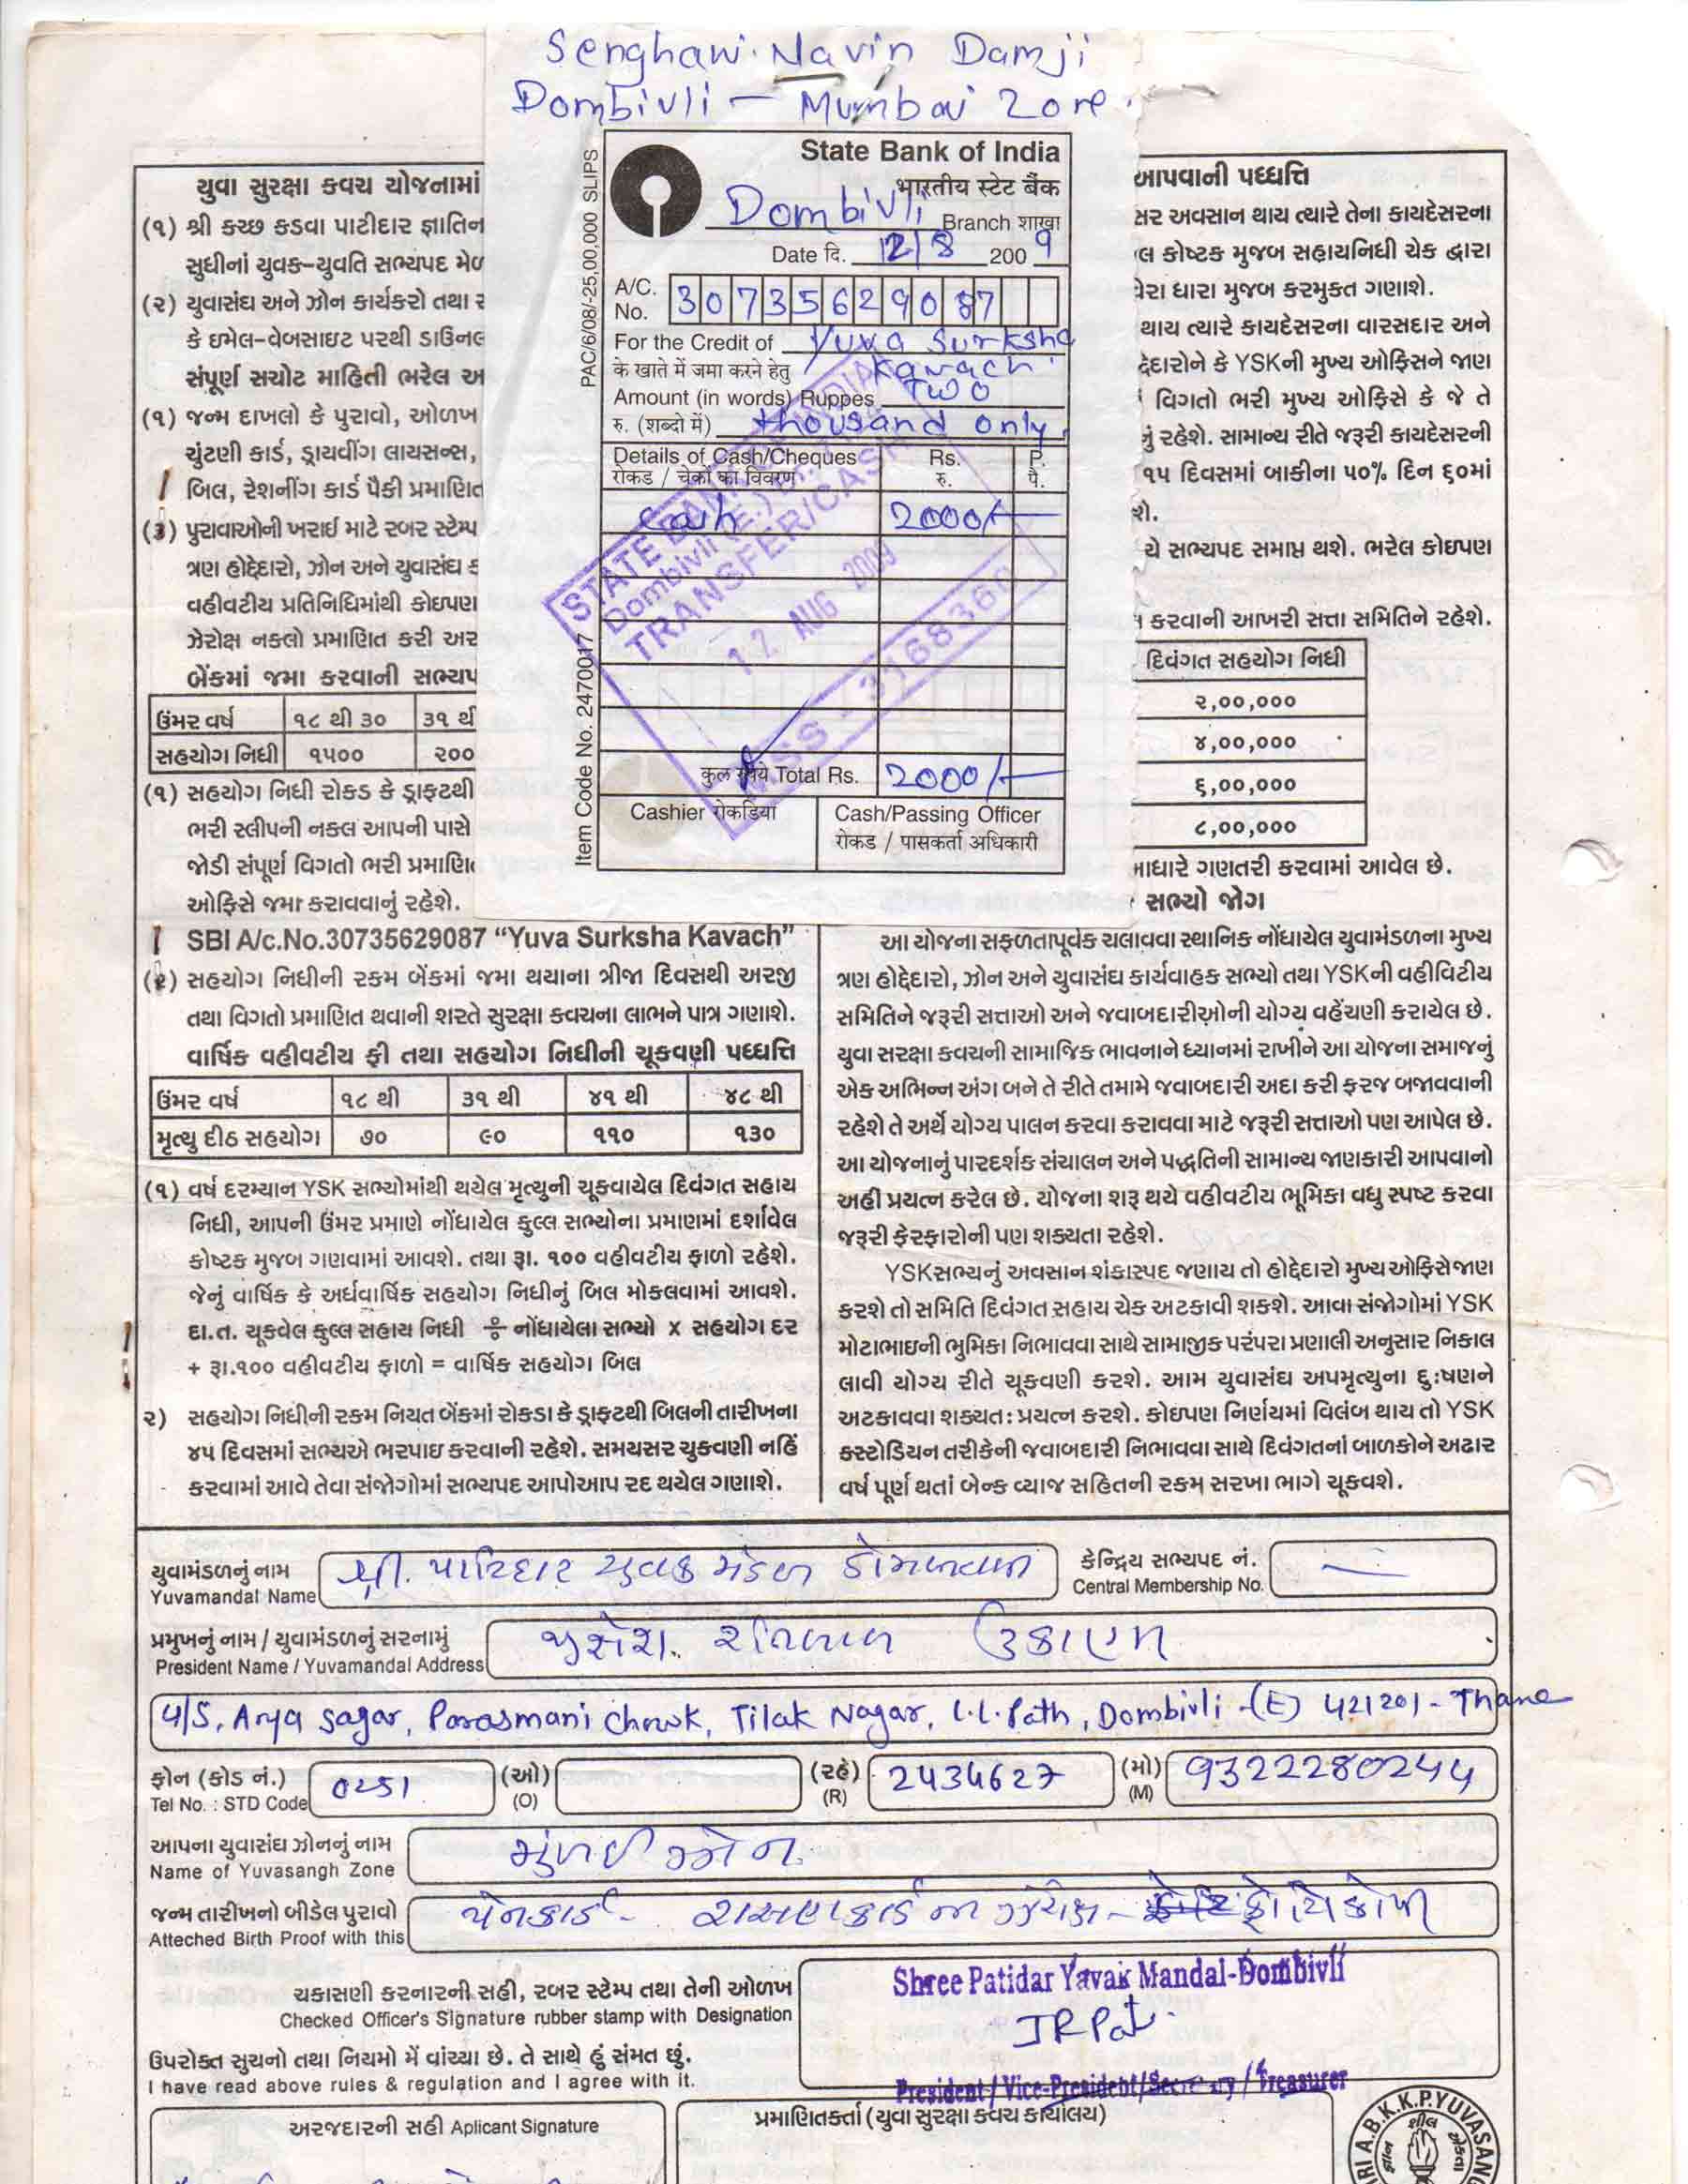 Senghani Navin Damji
Dombivli - Mumbai Zone.
PAC/6/08/-25,00,000 SLIPS
State Bank of India
भारतीय स्टेट बैंक
Dombivli Branch शाखा
Date दि. 12/8 2009
A/C. No. 30735629087
For the Credit of Yuva Surksha
के खाते में जमा करने हेतु Kavach
Amount (in words) Ruppes Two
रु. (शब्दो में) thousand only.
Details of Cash/Cheques Rs. P.
रोकड / चेकों का विवरण रु. पै.
Cash 2000/-
STATE BANK INDIA
Dombivli (E.)
TRANSFER/CASH
12 AUG 2009
MSS 3168360
कुल रुपये Total Rs. 2000/-
Cashier रोकडिया
Cash/Passing Officer
रोकड / पासकर्ता अधिकारी
Item Code No. 2470017
યુવા સુરક્ષા કવચ યોજનામાં
(૧) શ્રી કચ્છ કડવા પાટીદાર જ્ઞાતિન
સુધીનાં યુવક-યુવતિ સભ્યપદ મેળ
(૨) યુવાસંઘ અને ઝોન કાર્યકરો તથા
કે ઇમેલ-વેબસાઇટ પરથી ડાઉનલ
સંપૂર્ણ સચોટ માહિતી ભરેલ અ
(૧) જન્મ દાખલો કે પુરાવો, ઓળખ
ચુંટણી કાર્ડ, ડ્રાયવીંગ લાયસન્સ,
બિલ, રેશનીંગ કાર્ડ પૈકી પ્રમાણિત
(૩) પુરાવાઓની ખરાઇ માટે રબર સ્ટેમ્પ
ત્રણ હોદ્દેદારો, ઝોન અને યુવાસંઘ ક
વહીવટીય પ્રતિનિધિમાંથી કોઇપણ
ઝેરોક્ષ નકલો પ્રમાણિત કરી અર
બેંકમાં જમા કરવાની સભ્યપ
ઉંમર વર્ષ ૧૮ થી ૩૦ ૩૧ થ
સહયોગ નિધી ૧૫૦૦ ૨૦૦
(૧) સહયોગ નિધી રોકડ કે ડ્રાફ્ટથી
ભરી સ્લીપની નકલ આપની પાસે
જોડી સંપૂર્ણ વિગતો ભરી પ્રમાણિ
ઓફિસે જમા કરાવવાનું રહેશે.
1 SBI A/c.No.30735629087 “Yuva Surksha Kavach”
(૨) સહયોગ નિધીની રકમ બેંકમાં જમા થયાના ત્રીજા દિવસથી અરજી
તથા વિગતો પ્રમાણિત થવાની શરતે સુરક્ષા કવચના લાભને પાત્ર ગણાશે.
વાર્ષિક વહીવટીય ફી તથા સહયોગ નિધીની ચૂકવણી પધ્ધતિ
ઉંમર વર્ષ ૧૮ થી ૩૧ થી ૪૧ થી ૪૮ થી
મૃત્યુ દીઠ સહયોગ ૭૦ ૯૦ ૧૧૦ ૧૩૦
(૧) વર્ષ દરમ્યાન YSK સભ્યોમાંથી થયેલ મૃત્યુની ચૂકવાયેલ દિવંગત સહાય
નિધી, આપની ઉંમર પ્રમાણે નોંધાયેલ કુલ્લ સભ્યોના પ્રમાણમાં દર્શાવેલ
કોષ્ટક મુજબ ગણવામાં આવશે. તથા રૂા. ૧૦૦ વહીવટીય ફાળો રહેશે.
જેનું વાર્ષિક કે અર્ધવાર્ષિક સહયોગ નિધીનું બિલ મોકલવામાં આવશે.
દા.ત. ચૂકવેલ કુલ્લ સહાય નિધી ÷ નોંધાયેલા સભ્યો x સહયોગ દર
+ રૂા.૧૦૦ વહીવટીય ફાળો = વાર્ષિક સહયોગ બિલ
૨) સહયોગ નિધીની રકમ નિયત બેંકમાં રોકડા કે ડ્રાફ્ટથી બિલની તારીખના
૪૫ દિવસમાં સભ્યએ ભરપાઇ કરવાની રહેશે. સમયસર ચુકવણી નહિં
કરવામાં આવે તેવા સંજોગોમાં સભ્યપદ આપોઆપ રદ થયેલ ગણાશે.
આપવાની પધ્ધતિ
સર અવસાન થાય ત્યારે તેના કાયદેસરના
લ કોષ્ટક મુજબ સહાયનિધી ચેક દ્વારા
વેરા ધારા મુજબ કરમુક્ત ગણાશે.
થાય ત્યારે કાયદેસરના વારસદાર અને
દ્દેદારોને કે YSKની મુખ્ય ઓફિસને જાણ
વિગતો ભરી મુખ્ય ઓફિસે કે જે તે
નું રહેશે. સામાન્ય રીતે જરૂરી કાયદેસરની
૧૫ દિવસમાં બાકીના ૫૦% દિન ૬૦માં
શે.
યે સભ્યપદ સમાપ્ત થશે. ભરેલ કોઇપણ
કરવાની આખરી સત્તા સમિતિને રહેશે.
દિવંગત સહયોગ નિધી
૨,૦૦,૦૦૦
૪,૦૦,૦૦૦
૬,૦૦,૦૦૦
૮,૦૦,૦૦૦
આધારે ગણતરી કરવામાં આવેલ છે.
સભ્યો જોગ
આ યોજના સફળતાપૂર્વક ચલાવવા સ્થાનિક નોંધાયેલ યુવામંડળના મુખ્ય
ત્રણ હોદ્દેદારો, ઝોન અને યુવાસંઘ કાર્યવાહક સભ્યો તથા YSKની વહીવિટીય
સમિતિને જરૂરી સત્તાઓ અને જવાબદારીઓની યોગ્ય વહેંચણી કરાયેલ છે.
યુવા સરક્ષા કવચની સામાજિક ભાવનાને ધ્યાનમાં રાખીને આ યોજના સમાજનું
એક અભિન્ન અંગ બને તે રીતે તમામે જવાબદારી અદા કરી ફરજ બજાવવાની
રહેશે તે અર્થે યોગ્ય પાલન કરવા કરાવવા માટે જરૂરી સત્તાઓ પણ આપેલ છે.
આ યોજનાનું પારદર્શક સંચાલન અને પદ્ધતિની સામાન્ય જાણકારી આપવાનો
અહી પ્રયત્ન કરેલ છે. યોજના શરૂ થયે વહીવટીય ભૂમિકા વધુ સ્પષ્ટ કરવા
જરૂરી ફેરફારોની પણ શક્યતા રહેશે.
YSKસભ્યનું અવસાન શંકાસ્પદ જણાય તો હોદ્દેદારો મુખ્ય ઓફિસે જાણ
કરશે તો સમિતિ દિવંગત સહાય ચેક અટકાવી શકશે. આવા સંજોગોમાં YSK
મોટાભાઇની ભુમિકા નિભાવવા સાથે સામાજીક પરંપરા પ્રણાલી અનુસાર નિકાલ
લાવી યોગ્ય રીતે ચૂકવણી કરશે. આમ યુવાસંઘ અપમૃત્યુના દુ:ષણને
અટકાવવા શક્યત: પ્રયત્ન કરશે. કોઇપણ નિર્ણયમાં વિલંબ થાય તો YSK
કસ્ટોડિયન તરીકેની જવાબદારી નિભાવવા સાથે દિવંગતનાં બાળકોને અઢાર
વર્ષ પૂર્ણ થતાં બેન્ક વ્યાજ સહિતની રકમ સરખા ભાગે ચૂકવશે.
યુવામંડળનું નામ શ્રી. પાટિદાર યુવક મંડળ ડોમ્બીવલી કેન્દ્રિય સભ્યપદ નં.
Yuvamandal Name Central Membership No. —
પ્રમુખનું નામ / યુવામંડળનું સરનામું
President Name / Yuvamandal Address
4/5, Arya Sagar, Parasmani Chowk, Tilak Nagar, L.L. Path, Dombivli -(E) 421201 - Thane
ફોન (કોડ નં.) 0251 (ઓ) (રહે) 2434627 (મો) 9322280244
Tel No. : STD Code (O) (R) (M)
આપના યુવાસંઘ ઝોનનું નામ મુંબઈ ઝોન
Name of Yuvasangh Zone
જન્મ તારીખનો બીડેલ પુરાવો પેનકાર્ડ -
Atteched Birth Proof with this
ચકાસણી કરનારની સહી, રબર સ્ટેમ્પ તથા તેની ઓળખ
Checked Officer's Signature rubber stamp with Designation
Shree Patidar Yavak Mandal-Dombivli
JRPat
President / Vice-President / Secretary / Treasurer
ઉપરોક્ત સુચનો તથા નિયમો મેં વાંચ્યા છે. તે સાથે હું સંમત છું.
I have read above rules & regulation and I agree with it.
અરજદારની સહી Aplicant Signature
પ્રમાણિતકર્તા (યુવા સુરક્ષા કવચ કાર્યાલય)
A.B.K.K.P.YUVASANG